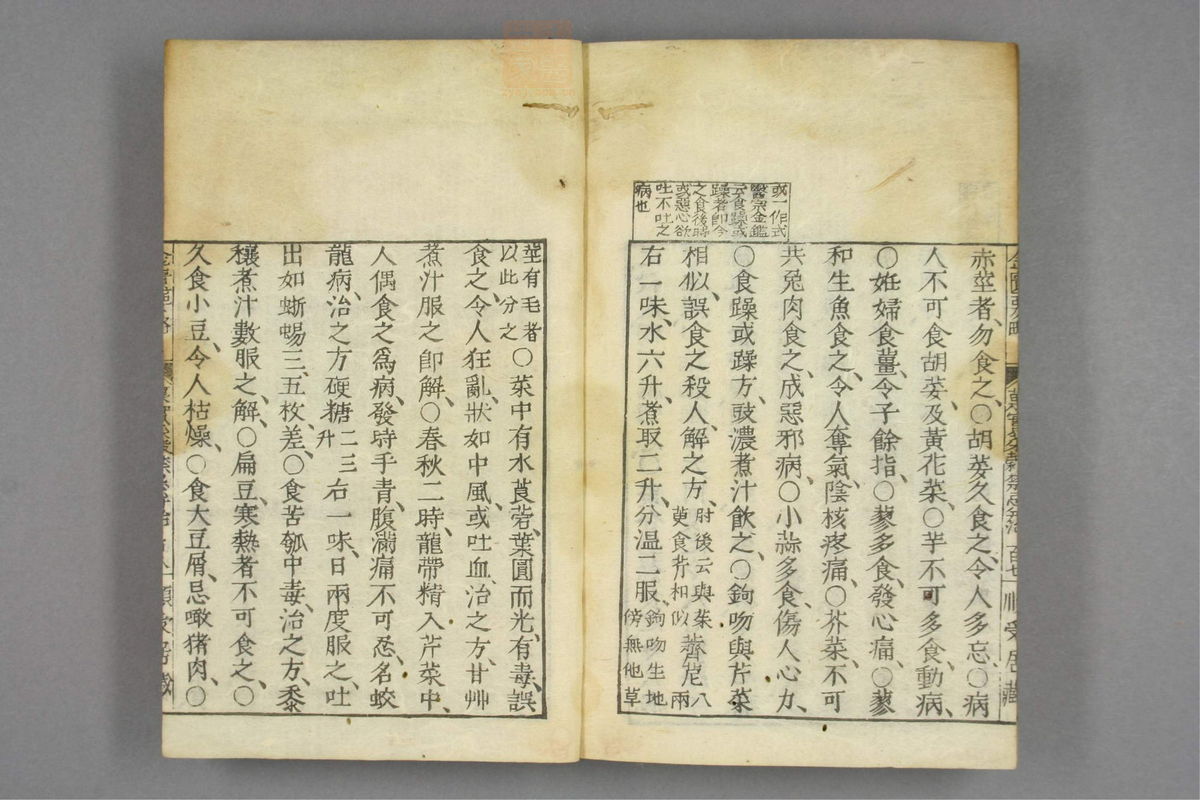 赤莖者、勿食之、○胡荽久食之、令人多忘、○病
人不可食胡荽及黃花菜、○芋不可多食、動病、
○妊婦食薑、令子餘指、○蓼多食、發心痛、○蓼
和生魚食之、令人奪氣、陰核疼痛、○芥菜、不可
共兔肉食之、成惡邪病、○小蒜多食、傷人心力、
○食躁或躁方、豉濃煮汁飲之、○鉤吻與芹菜
相似、誤食之殺人、解之方、肘後云與菜茰食芥相似薺苨八兩
右一味、水六升、煮取二升、分溫二服、鉤吻生地傍無他草
或一作式
醫宗金鑑
云食躁或
躁者即今
之食後時
或惡心欲
吐不吐之
病也
莖有毛者以此分之○菜中有水莨菪、葉圓而光、有毒、誤
食之、令人狂亂、狀如中風、或吐血、治之方、甘艸
煮汁服之即解、○春秋二時、龍帶精入芹菜中、
人偶食之為病、發時手青、腹滿痛不可忍、名蛟
龍病、治之方、硬糖二三升右一味、日兩度服之、吐
出如蜥蜴三五枚、差、○食苦瓠中毒、治之方、黍
穰煮汁、數服之、解、○扁豆、寒熱者不可食之、○
久食小豆、令人枯燥、○食大豆屑、忌噉猪肉、○